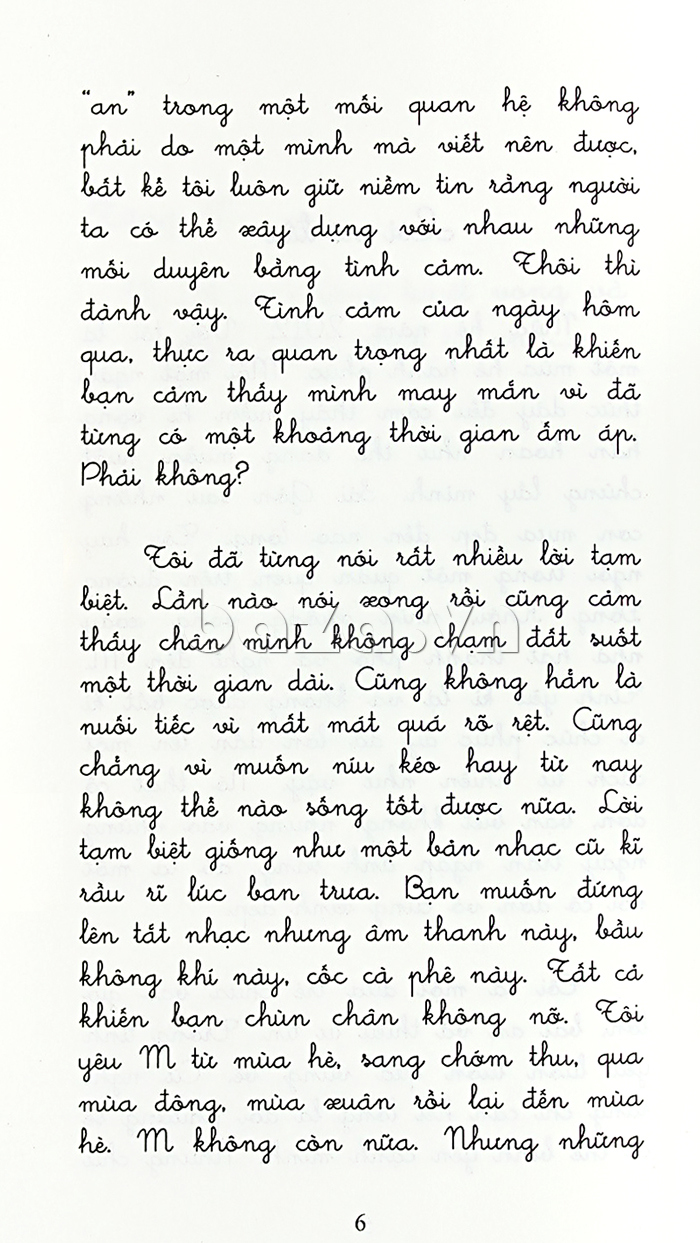 “an” trong một mối quan hệ không
phải do một mình mà viết nên được,
bất kể tôi luôn giữ niềm tin rằng người
ta có thể xây dựng với nhau những
mối duyên bằng tình cảm. Thôi thì
đành vậy. Tình cảm của ngày hôm
qua, thực ra quan trọng nhất là khiến
bạn cảm thấy mình may mắn vì đã
từng có một khoảng thời gian ấm áp.
Phải không?
Tôi đã từng nói rất nhiều lời tạm
biệt. Lần nào nói xong rồi cũng cảm
thấy chân mình không chạm đất suốt
một thời gian dài. Cũng không hẳn là
nuối tiếc vì mất mát quá rõ rệt. Cũng
chẳng vì muốn níu kéo hay từ nay
không thể nào sống tốt được nữa. Lời
tạm biệt giống như một bản nhạc cũ kĩ
rầu rĩ lúc ban trưa. Bạn muốn đứng
lên tắt nhạc nhưng âm thanh này, bầu
không khí này, cốc cà phê này. Tất cả
khiến bạn chùn chân không nỡ. Tôi
yêu M từ mùa hè, sang chớm thu, qua
mùa đông, mùa xuân rồi lại đến mùa
hè. M không còn nữa. Nhưng những
6